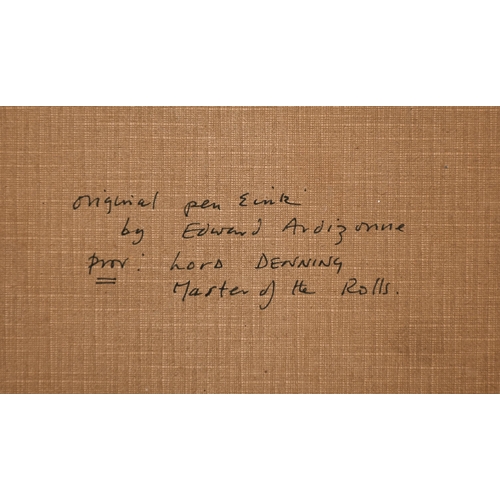 original pen & ink
by Edward Ardizonne
prov: LORD DENNING
Master of the Rolls.